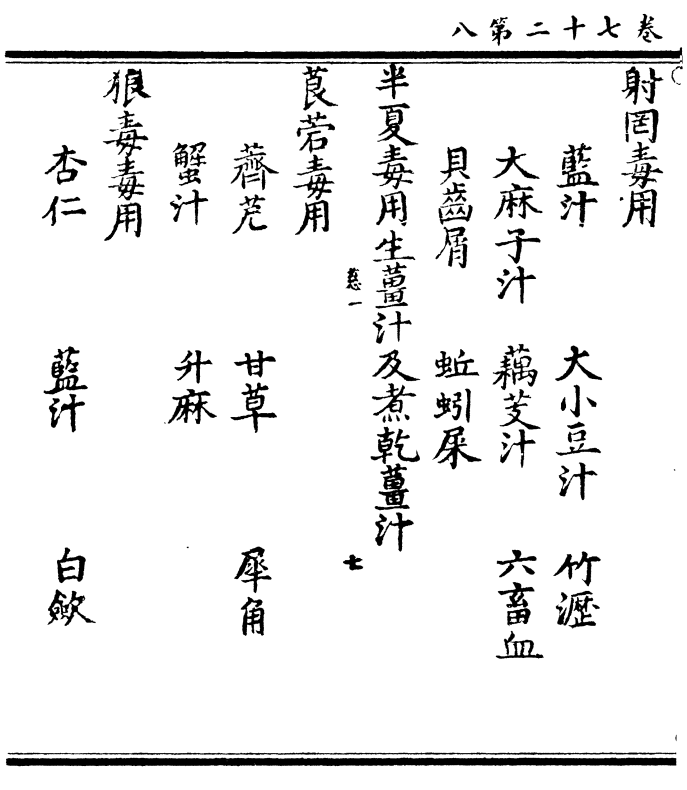 卷七十二第八
射罔毒用
藍汁 大小豆汁 竹瀝
大麻子汁 藕芰汁 六畜血
貝齒屑 蚯蚓屎
半夏毒用生薑汁及煮乾薑汁
慈一 七
莨菪毒用
薺苨 甘草 犀角
蟹汁 升麻
狼毒毒用
杏仁 藍汁 白蘞